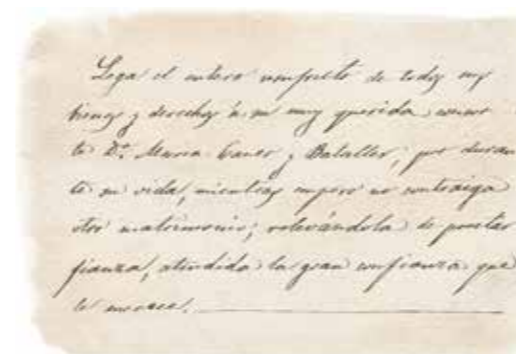 Lega el entero usufructo de todos sus
bienes y derechos á su muy querida consor
te D.ª Maria Ganer y Bataller, por duran
te su vida, mientras empero no contraiga
otro matrimonio; relevándola de prestar
fianza, atendida la gran confianza que
le merece.